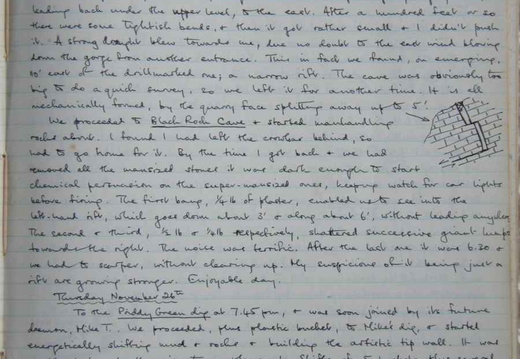 leading back under the upper level, to the east. After a hundred feet or so
there were some tightish bends, & then it got rather small & I didn't push
it. A strong draught blew towards me, due no doubt to the east wind blowing
down the gorge from another entrance. This in fact we found, on emerging,
10' east of the drillmarked one; a narrow rift. The cave was obviously too
big to do a quick survey, so we left it for another time. It is all
mechanically formed, by the quarry face splitting away up to 5'.
We proceeded to Black Rock Cave & started manhandling
rocks about. I found I had left the crowbar behind, so
had to go home for it. By the time I got back & we had
removed all the mansized stones it was dark enough to start
chemical persuasion on the super-mansized ones, keeping watch for car lights
before firing. The first bang, 1/4 lb of plaster, enabled us to see into the
left-hand rift, which goes down about 3' & along about 6', without leading anywhere.
The second & third, lb & lb respectively, shattered successive giant lumps
towards the right. The noise was terrific. After the last one it was 6.30 &
we had to scarper, without clearing up. My suspicions of it being just a
rift are growing stronger. Enjoyable day.
Thursday November 26th
To the Priddy Green dig at 7.45 pm, & was soon joined by its future
demon, Mike T. We proceeded, plus plastic bucket, to Mike's dig, & started
energetically shifting mud & rocks & building the artistic tip wall. It was